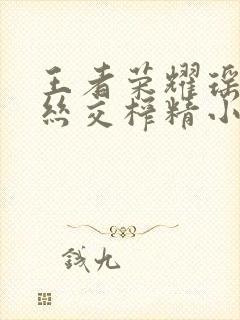 王者荣耀瑶
丝交榨精小
钱九